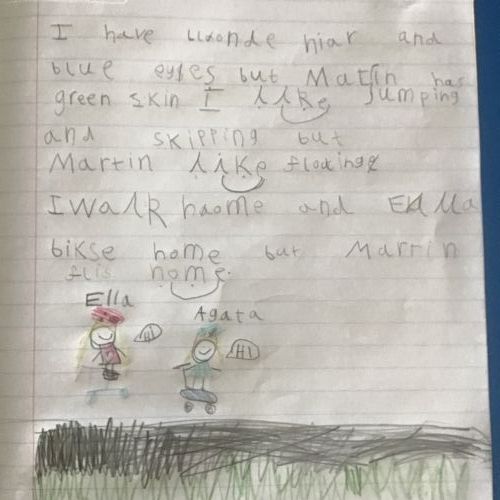 I have blonde hiar and
blue eyes but Martin has
green skin I like Jumping
and skipping but
Martin like floating
I walk haome and Ella
bikse home but Martin
flis home.
Ella
Agata
HI
HI